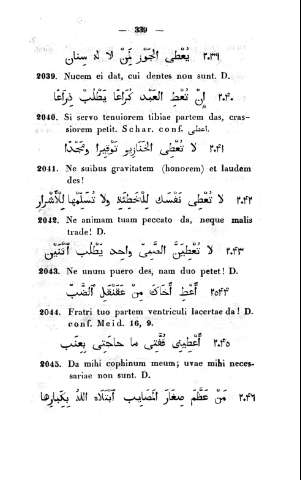 — 339 —
٢٠٣٩ يُعْطِى الْجَوْزَ مَنْ لَا لَهُ سِنَان
2039. Nucem ei dat, cui dentes non sunt. D.
٢٠٤٠ إِنْ تُعْطِ العَبْدَ كُرَاعًا يَطْلُبْ ذِرَاعًا
2040. Si servo tenuiorem tibiae partem das, cras-
siorem petit. Schar. conf. اعطى.
٢٠٤١ لا تُعْطِى الخَنَازِيرَ تَوْقِيرًا وتَمَجُّدًا
2041. Ne suibus gravitatem (honorem) et laudem
des!
٢٠٤٢ لا تُعْطِى نَفْسَكَ لِلْخَطِئَةِ ولا تُسَلِّمْهَا لِلْأَشْرار
2042. Ne animam tuam peccato da, neque malis
trade! D.
٢٠٤٣ لا تُعْطِيَنَّ الصَّبِىَّ واحِدٍ يَطْلُبِ ٱثْنَيْنِ
2043. Ne unum puero des, nam duo petet! D.
٢٠٤٤ أَعْطِ أَخَاكَ مِنْ عَقَنْقَلِ الضَّبّ
2044. Fratri tuo partem ventriculi lacertae da! D.
conf. Meid. 16, 9.
٢٠٤٥ أَعْطِينِى قُفَّتِى ما حاجَتِى بِعِنَب
2045. Da mihi cophinum meum; uvae mihi neces-
sariae non sunt. D.
٢٠٤٦ مَنْ عَظَّمَ صِغَارَ المَصَايِبِ ٱبْتَلَاهُ اللهُ بِكِبَارِها